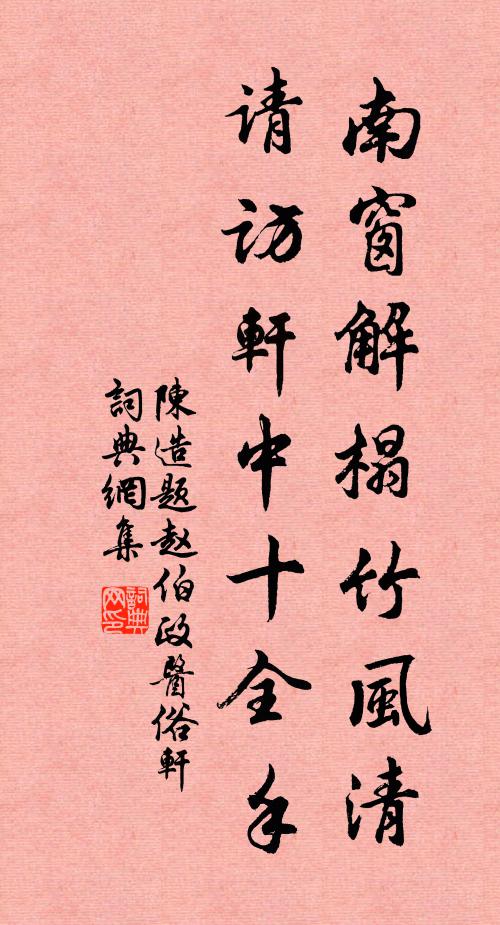 南窗解榻竹風清
请訪軒中十全手
陳造题赵伯政醫俗軒
詞典網集
詞典网印